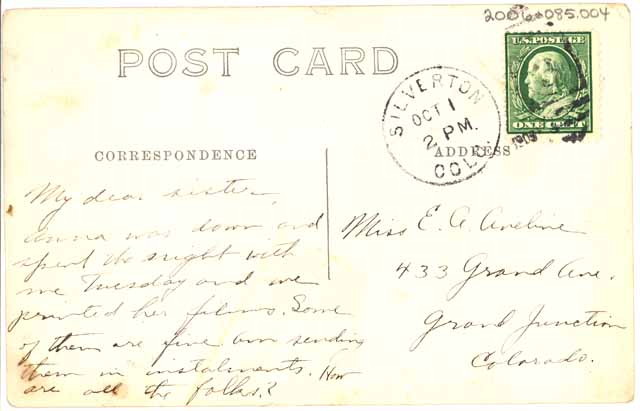 2006.085.004
POST CARD
U.S. POSTAGE
ONE CENT
SILVERTON
OCT 1
2 PM.
1909
COLO.
CORRESPONDENCE
ADDRESS
My dear sister,
Anna was down and
spent the night with
me Tuesday and we
printed her films. Some
of them are fine am sending
them in instalments. How
are all the folks?
Miss E. A. Aveline
433 Grand Ave.
Grand Junction
Colorado.